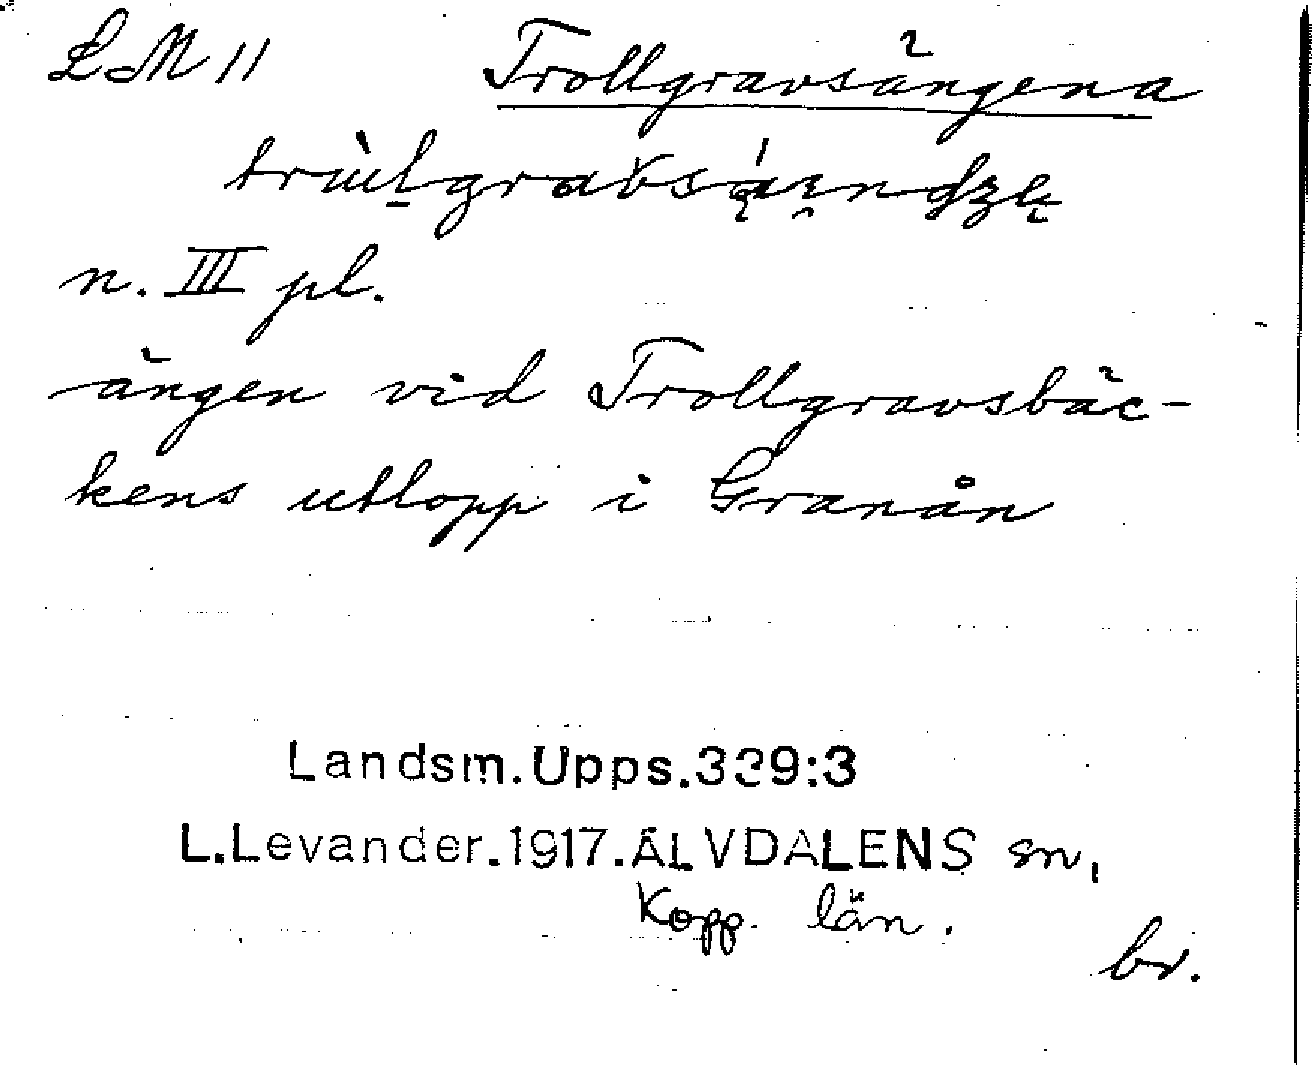 LM 11 Trollgravsängena
n. III pl.
ängen vid Trollgravsbäc-
kens utlopp i Granån
Landsm.Upps.339:3
L.Levander.1917.ÄLVDALENS sn,
Kopp. län.
br.